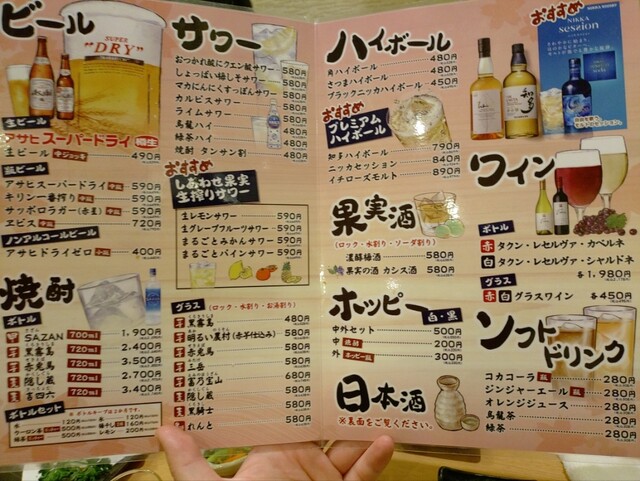 ビール
SUPER
"DRY"
生ビール
アサヒスーパードライ 樽生
生ビール 中ジョッキ 490円
瓶ビール
アサヒスーパードライ 中瓶 590円
キリン一番搾り 中瓶 590円
サッポロラガー(赤星) 中瓶 590円
ヱビス 中瓶 720円
ノンアルコールビール
アサヒドライゼロ 小瓶 400円
焼酎
ボトル
甲 SAZAN 700ml 1,900円
芋 黒霧島 720ml 2,400円
芋 赤兎馬 720ml 3,500円
芋 隠し蔵 720ml 2,700円
吉四六 720ml 3,400円
ボトルセット
水 120円
ウーロン茶 500円
緑茶 500円
梅干し 160円
レモン 200円
サワー
おつかれ様にクエン酸サワー 580円
しょっぱい梅しそサワー 580円
マカにんにくすっぽんサワー 580円
カルピスサワー 580円
ライムサワー 580円
烏龍ハイ 480円
緑茶ハイ 480円
焼酎 タンサン割 480円
おすすめ
しあわせ果実
生搾りサワー
生レモンサワー 590円
生グレープフルーツサワー 590円
まるごとみかんサワー 590円
まるごとパインサワー 590円
グラス (ロック・水割り・お湯割り)
芋 黒霧島 480円
芋 明るい農村(赤芋仕込み) 580円
芋 赤兎馬 580円
芋 三岳 580円
芋 富乃宝山 680円
隠し蔵 580円
黒騎士 580円
れんと 580円
ハイボール
角ハイボール 480円
さつまハイボール 480円
ブラックニッカハイボール 450円
おすすめ
プレミアム
ハイボール
知多ハイボール 790円
ニッカセッション 840円
イチローズモルト 890円
果実酒
(ロック・水割り・ソーダ割り)
濃醇梅酒 580円
果実の酒 カシス酒 580円
ホッピー 白・黒
中外セット 500円
中 焼酎 200円
外 ホッピー瓶 335円
日本酒
※裏面をご覧ください。
おすすめ
NIKKA
session
知多
ワイン
ボトル
赤 タクン・レセルヴァ・カベルネ
白 タクン・レセルヴァ・シャルドネ
各1,980円
グラス
赤 白 グラスワイン 各450円
ソフト
ドリンク
コカコーラ 瓶 280円
ジンジャーエール 瓶 280円
オレンジジュース 280円
烏龍茶 280円
緑茶 280円